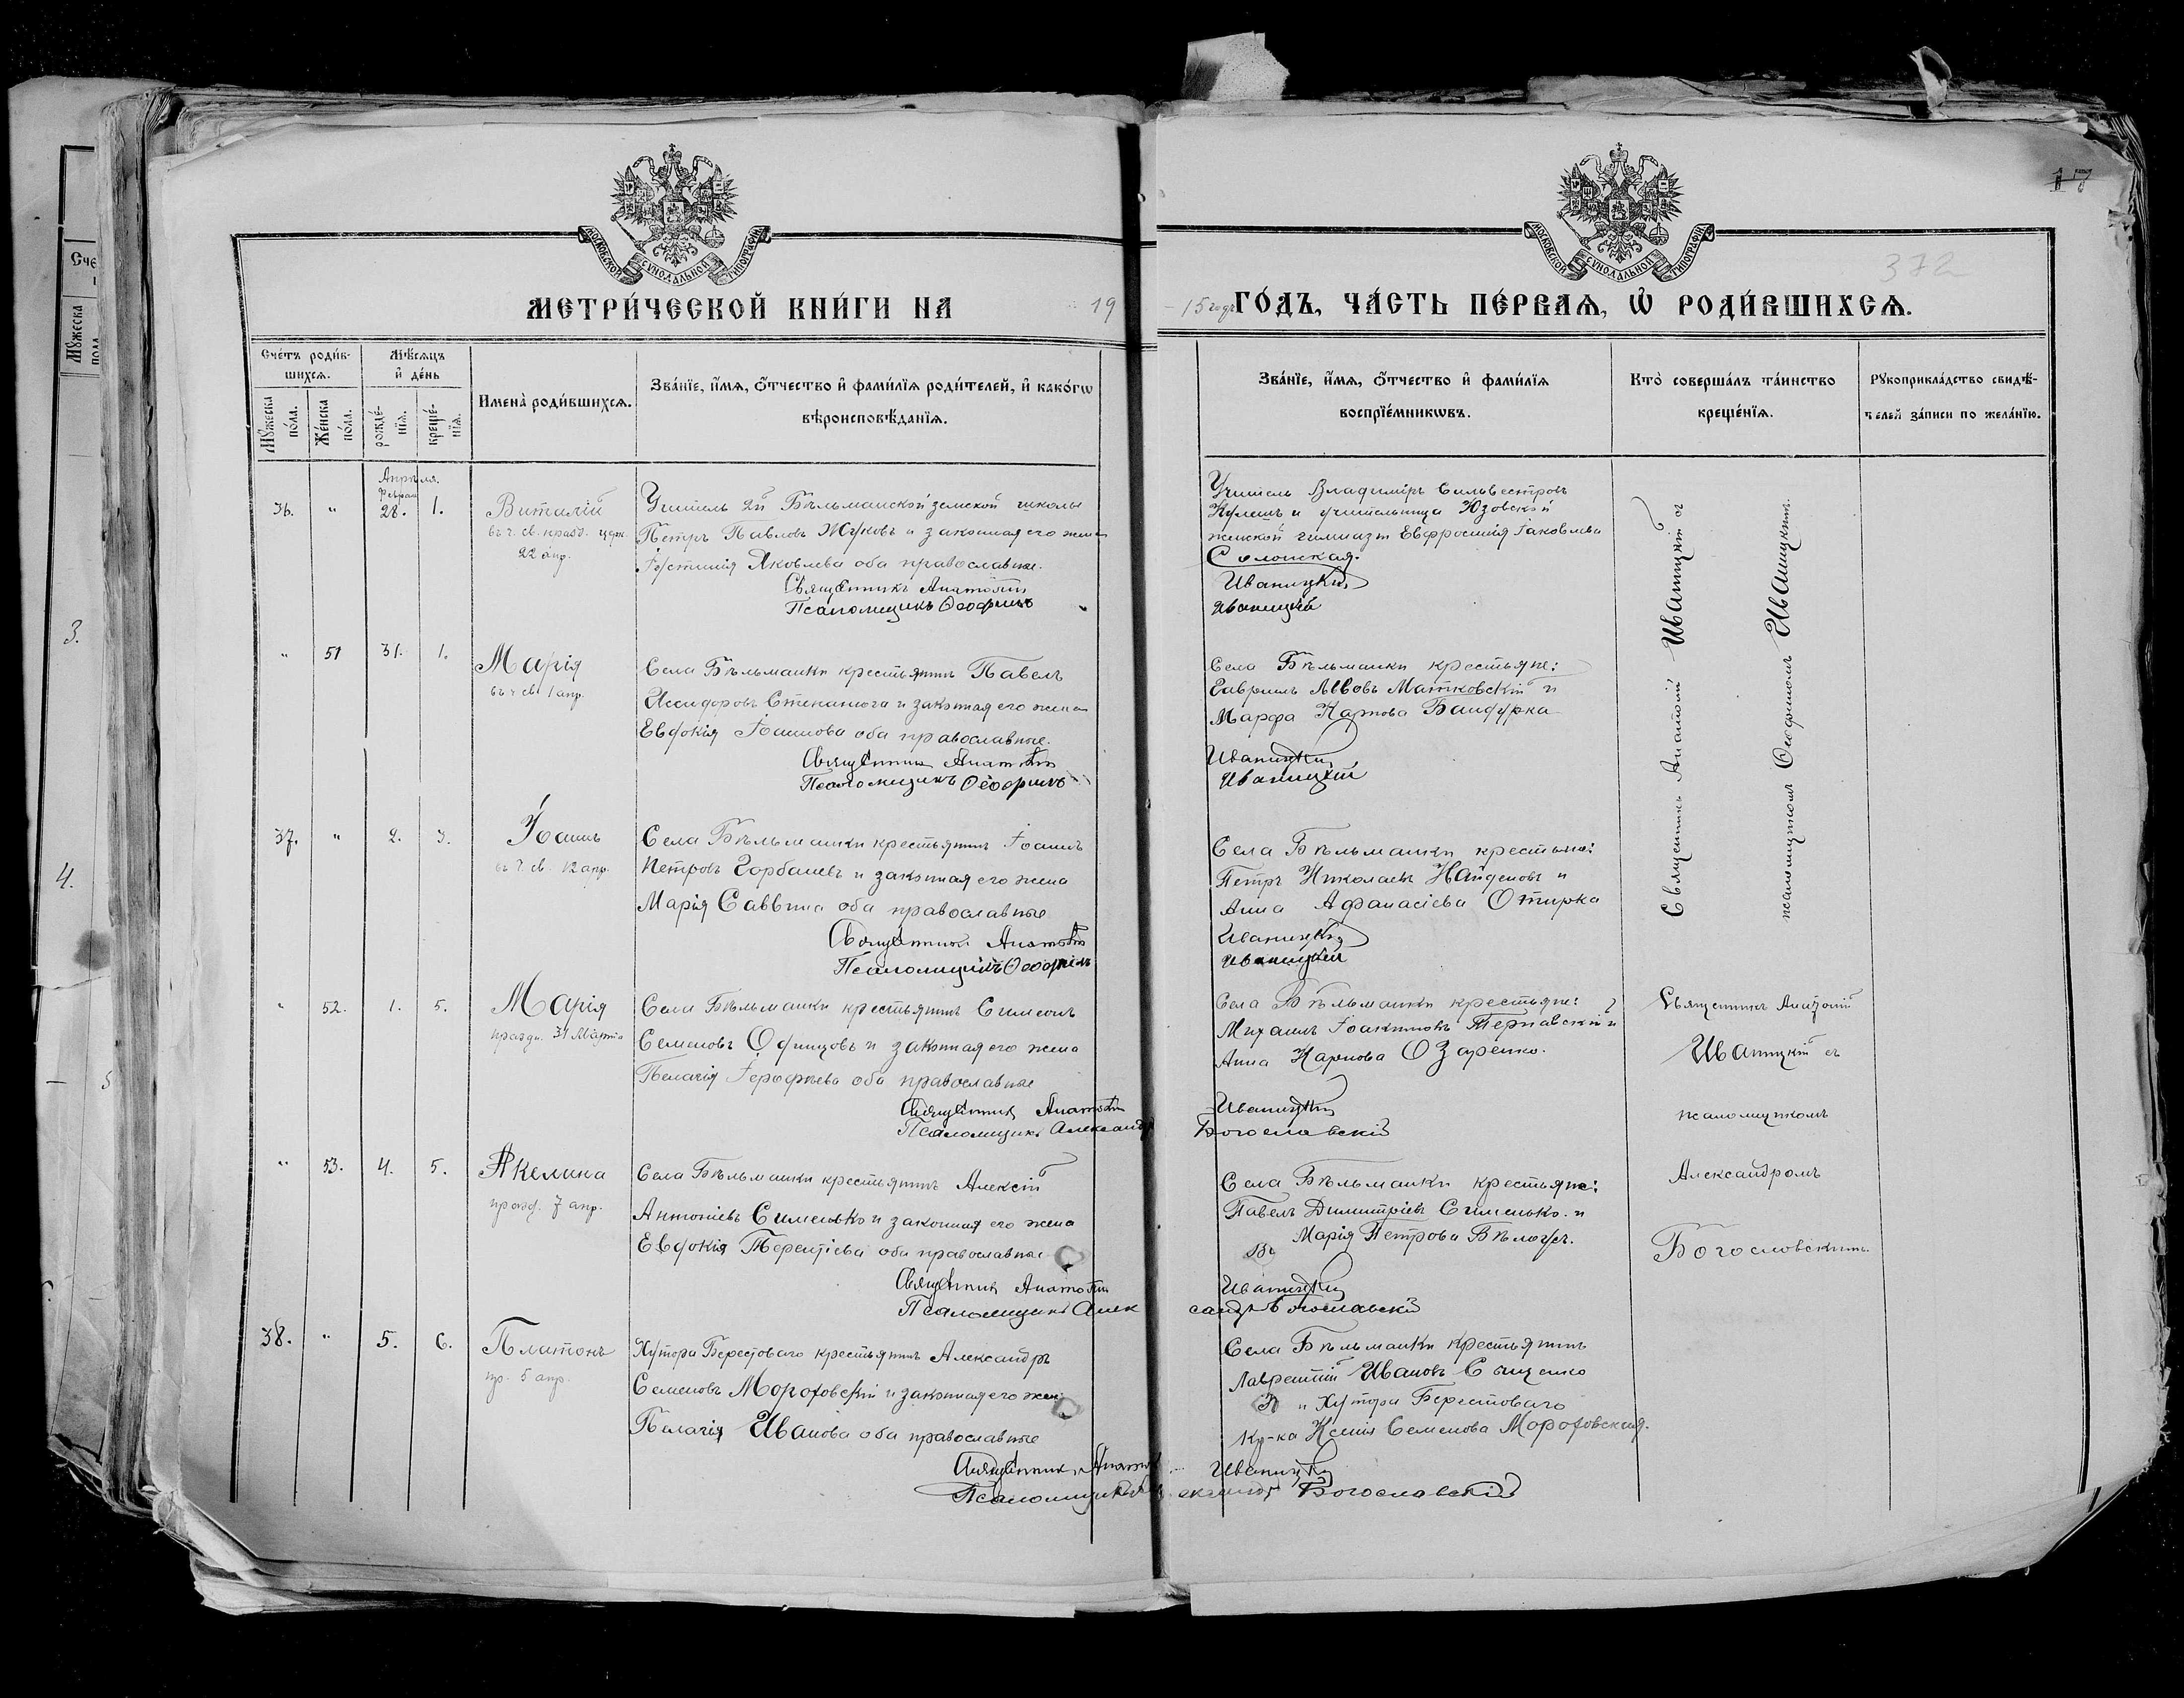 МОСКОВСКОЙ СѴНОДАЛЬНОЙ ТИПОГРАФІИ
МОСКОВСКОЙ СѴНОДАЛЬНОЙ ТИПОГРАФІИ
17
372
МЕТРИ́ЧЕСКОЙ КНИ́ГИ НА 19
15 годъ ГО́ДЪ, ЧА́СТЬ ПЕ́РВАѦ, Ѡ҆ РОДИ́ВШИХСѦ.
Сче́тъ роди́в-
шихсѧ.
Мѣ́сѧцъ
и҆ де́нь
Имена̀ роди́вшихсѧ.
Зва́нїе, и҆́мѧ, ѻ҆́тчество и҆ фами́лїѧ роди́телей, и҆ како́гѡ
вѣроисповѣ́данїѧ.
Мꙋ́жеска
по́ла.
Же́нска
по́ла.
рожде́-
нїѧ.
креще́-
нїѧ.
Зва́нїе, и҆́мѧ, ѻ҆́тчество и҆ фами́лїѧ
воспрїе́мникѡвъ.
Кто̀ соверша́лъ та́инство
креще́нїѧ.
Рꙋкоприкла́дство свидѣ́-
телей за́писи по жела́нїю.
Апрѣля.
36. " 28. 1. Виталій
22 апр.
Учитель 2й Бѣльманской земской школы
Петръ Павловъ Жуковъ и законная его жена
Іустинія Яковлева оба православные.
Священникъ Анатолій
Псаломщикъ Ѳеофилъ
Учитель Владиміръ Сильвестровъ
Кулешъ и учительница Юзовской
женской гимназіи Евфросинія Іаковлева
Солонская.
Иваницкій
Иваницкій
" 51 31. 1. Марія
1 апр.
Села Бѣльманки крестьянинъ Павелъ
Исидоровъ и законная его жена
Евдокія Іоаннова оба православные.
Священникъ Анатолій
Псаломщикъ Ѳеофилъ
Села Бѣльманки крестьяне:
Гавріилъ Львовъ Матковскій и
Марфа Карпова Бандурка
Иваницкій
Иваницкій
Священникъ Анатолій Иваницкій съ
псаломщикомъ Ѳеофиломъ Иваницкимъ.
37. " 2. 3. Іоаннъ
12 апр.
Села Бѣльманки крестьянинъ Іоаннъ
Петровъ Горбачевъ и законная его жена
Марія Саввина оба православные
Священникъ Анатолій
Псаломщикъ Ѳеофилъ
Села Бѣльманки крестьяне:
Петръ Николаевъ Найденовъ и
Анна Афанасіева
Иваницкій
Иваницкій
" 52. 1. 5. Марія
праздн. 31 Марта
Села Бѣльманки крестьянинъ Симеонъ
Семеновъ Одинцовъ и законная его жена
Пелагія Іерофѣева оба православные
Священникъ Анатолій
Псаломщикъ Александръ
Села Бѣльманки крестьяне:
Михаилъ Іоакимовъ Тернавскій и
Анна Карпова Озаренко.
Иваницкій
Богословскій
Священникъ Анатолій
Иваницкій съ
псаломщикомъ
Александромъ
Богословскимъ.
" 53. 4. 5. Акелина
празд. 7 апр.
Села Бѣльманки крестьянинъ Алексій
Антоніевъ Сименько и законная его жена
Евдокія Терентіева оба православные
Священникъ Анатолій
Псаломщикъ Алек
Села Бѣльманки крестьяне:
Павелъ Димитріевъ Сименько и
Марія Петрова Бѣлоусъ.
Иваницкій
сандръ Богословскій
38. " 5. 6. Платонъ
пр. 5 апр.
Хутора Берестоваго крестьянинъ Александръ
Семеновъ Мороховскій и законная его жена
Пелагія Иванова оба православные
Священникъ Анатолій
Псаломщикъ Ал
Села Бѣльманки крестьянинъ
Лаврентій Ивановъ
и Хутора Берестоваго
кр-ка Ксенія Семенова Мороховская.
Иваницкій
ександръ Богословскій
3.
4.